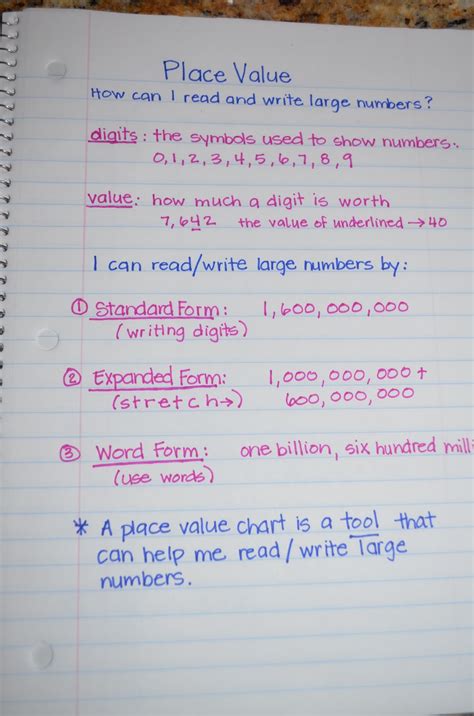 Place Value
How can I read and write large numbers?
digits: the symbols used to show numbers.
0,1,2,3,4,5,6,7,8,9
value: how much a digit is worth
7,642 the value of underlined → 40
I can read/write large numbers by:
① Standard Form: 1,600,000,000
(writing digits)
② Expanded Form: 1,000,000,000 +
(stretch→) 600,000,000
③ Word Form: one billion, six hundred mill
(use words)
* A place value chart is a tool that
can help me read/write large
numbers.